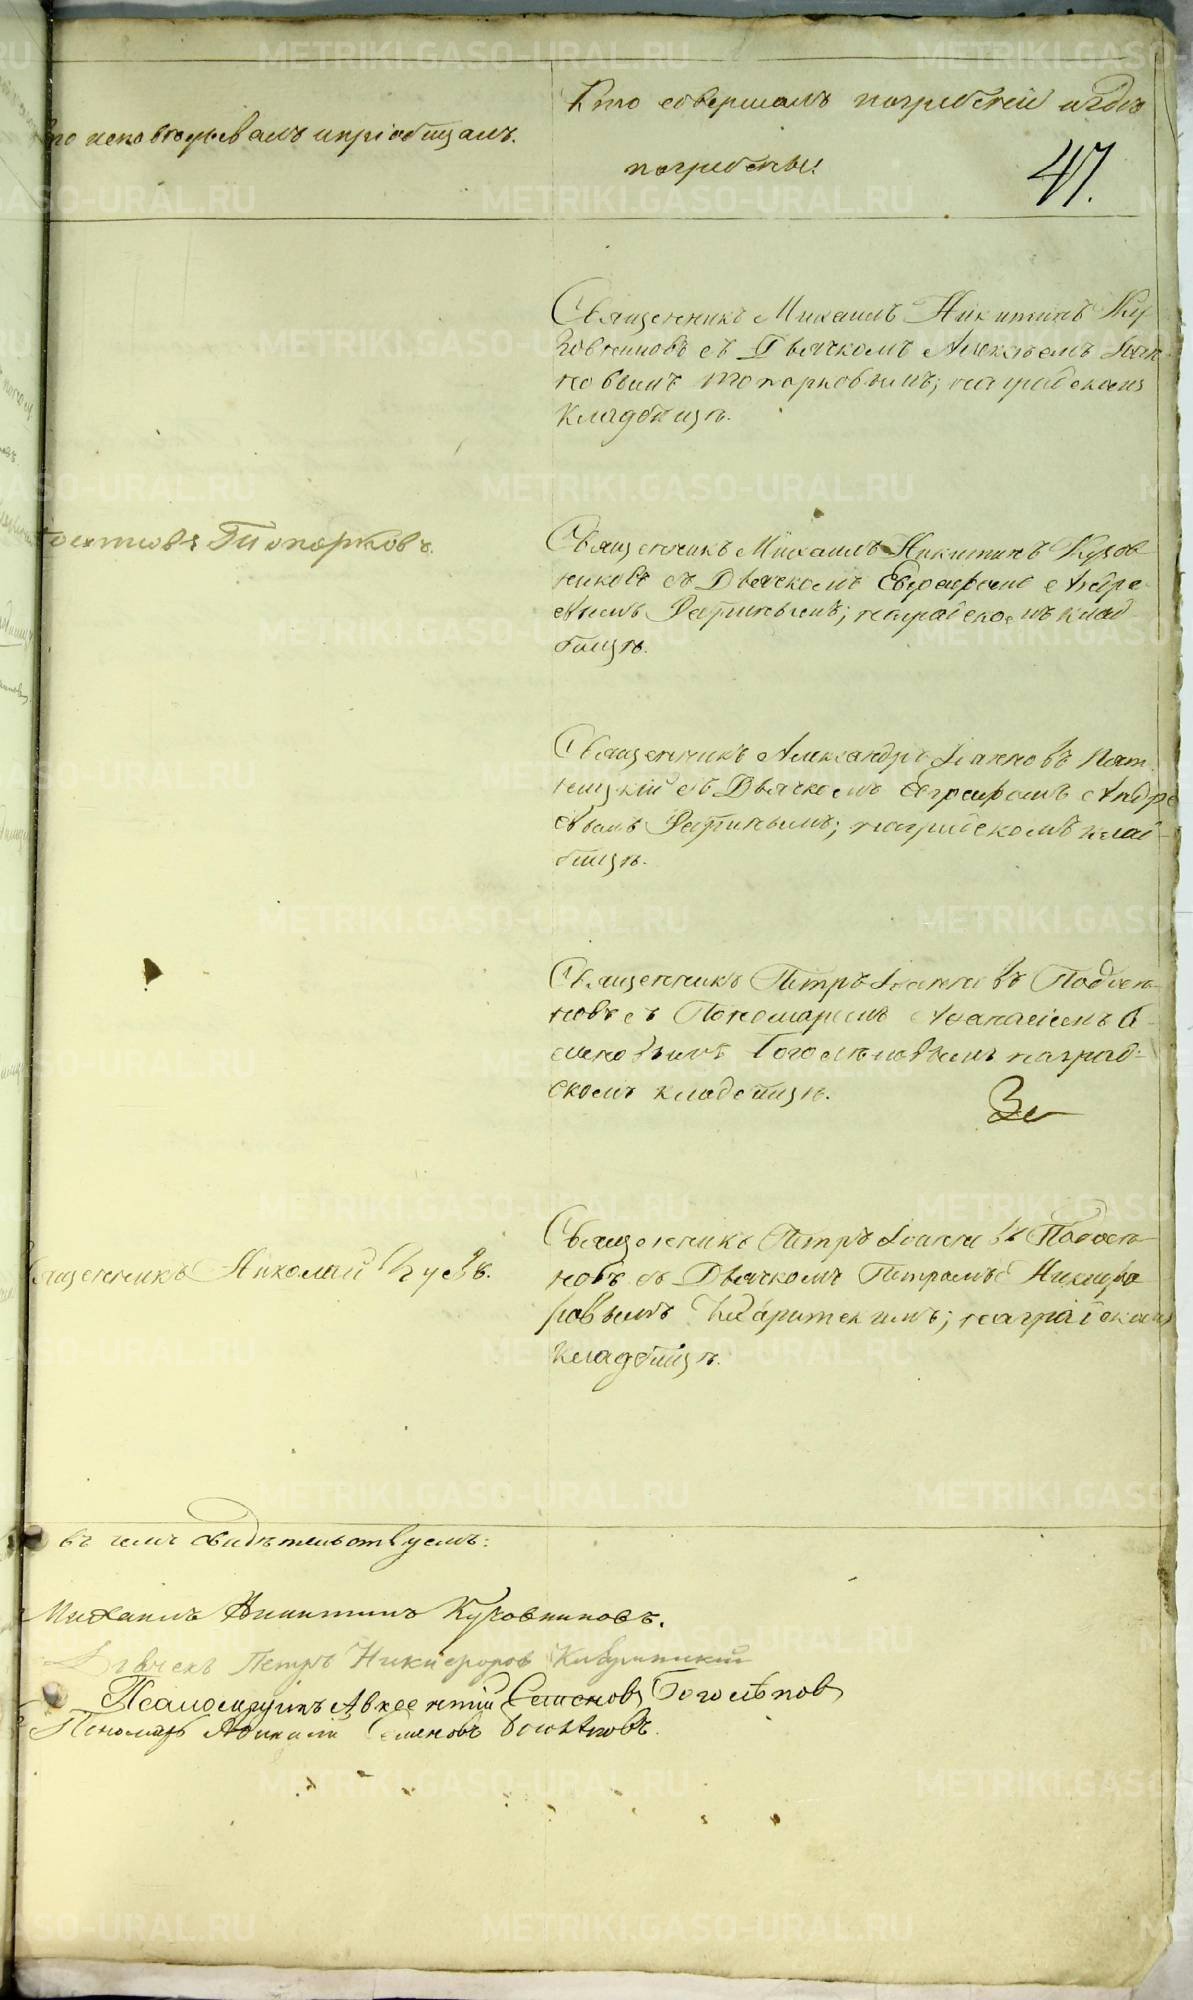 Кто исповѣдывалъ и пріобщалъ.
Кто совершалъ погребеніе и гдѣ
погребены.
47.
Священникъ Михаилъ Никитинъ Ку
зовниковъ съ Дьячкомъ Алексѣемъ Іоан
новымъ Топорковымъ; на градскомъ
кладбищѣ.
Топорковъ.
Священникъ Михаилъ Никитинъ Кузов
никовъ съ Дьячкомъ Евграфомъ Андре
евымъ; на градскомъ клад
бищѣ.
Священникъ Александръ Іоанновъ Пят
ницкій съ Дьячкомъ Евграфомъ Андре
евымъ; на градскомъ клад
бищѣ.
Священникъ Петръ Іоанновъ
съ Пономаремъ Аѳанасіемъ С
еменовымъ Боголѣповымъ на град
скомъ кладбищѣ.
Священникъ Николай
Священникъ Петръ Іоанновъ
съ Дьячкомъ Петромъ Никифо
ровымъ на градскомъ
кладбищѣ.
въ чемъ свидѣтельствуемъ:
Михаилъ Никитинъ Кузовниковъ.
Дьячекъ Петръ Никифоровъ
Псаломщикъ Авксентій Семеновъ Боголѣповъ
Пономарь Семеновъ Боголѣповъ.
METRIKI.GASO-URAL.RU